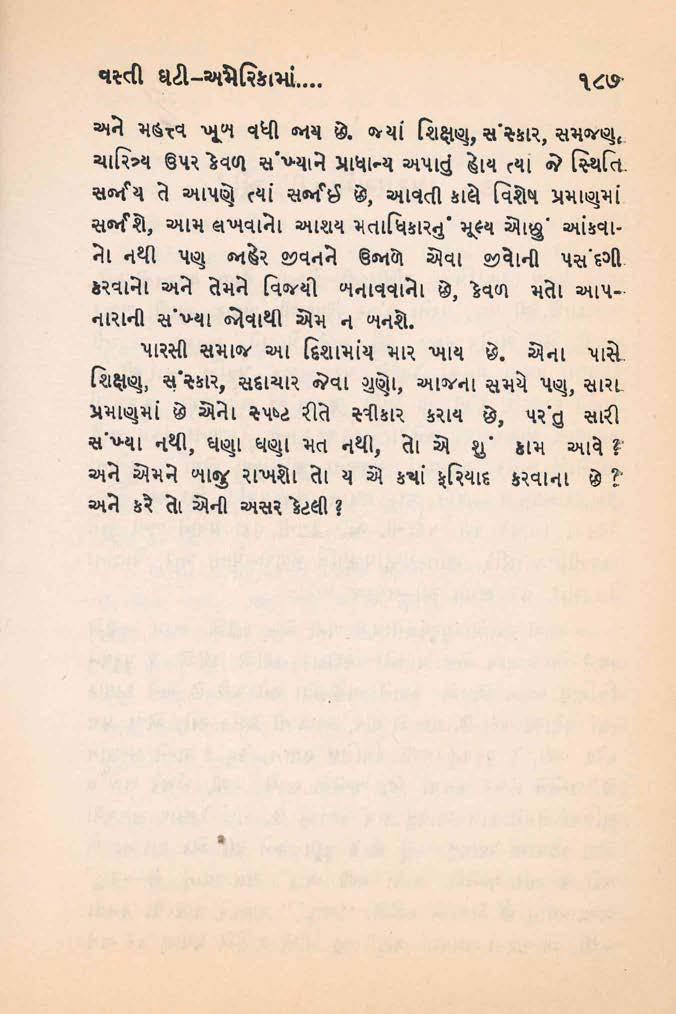 વસ્તી ઘટી–અમેરિકામાં....
૧૮૭
અને મહત્ત્વ ખૂબ વધી જાય છે. જ્યાં શિક્ષણ, સંસ્કાર, સમજણ,
ચારિત્ર્ય ઉપર કેવળ સંખ્યાને પ્રાધાન્ય અપાતું હોય ત્યાં જે સ્થિતિ
સર્જાય તે આપણે ત્યાં સર્જાઈ છે, આવતી કાલે વિશેષ પ્રમાણમાં
સર્જાશે, આમ લખવાનો આશય મતાધિકારનું મૂલ્ય ઓછું આંકવા-
નો નથી પણ જાહેર જીવનને ઉજાળે એવા જીવોની પસંદગી
કરવાનો અને તેમને વિજયી બનાવવાનો છે, કેવળ મતો આપ-
નારાની સંખ્યા જોવાથી એમ ન બનશે.
પારસી સમાજ આ દિશામાંય માર ખાય છે. એના પાસે
શિક્ષણ, સંસ્કાર, સદાચાર જેવા ગુણો, આજના સમયે પણ, સારા
પ્રમાણમાં છે એનો સ્પષ્ટ રીતે સ્વીકાર કરાય છે, પરંતુ સારી
સંખ્યા નથી, ઘણા ઘણા મત નથી, તો એ શું કામ આવે ?
અને એમને બાજુ રાખશો તો ય એ ક્યાં ફરિયાદ કરવાના છે ?
અને કરે તો એની અસર કેટલી ?